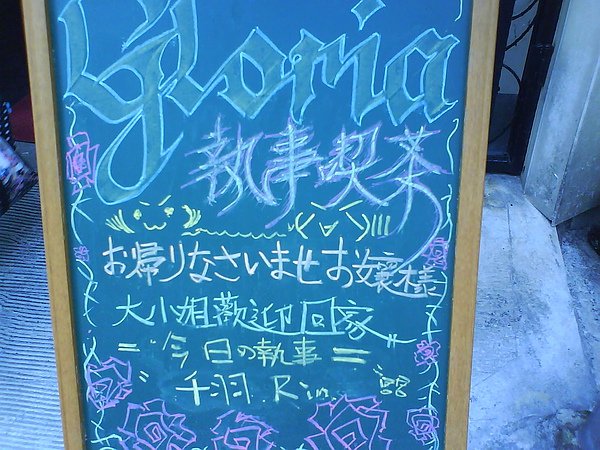 Gloria
執事喫茶
お帰りなさいませお嬢様
大小姐歡迎回家
＝今日の執事＝
千羽 Rin.